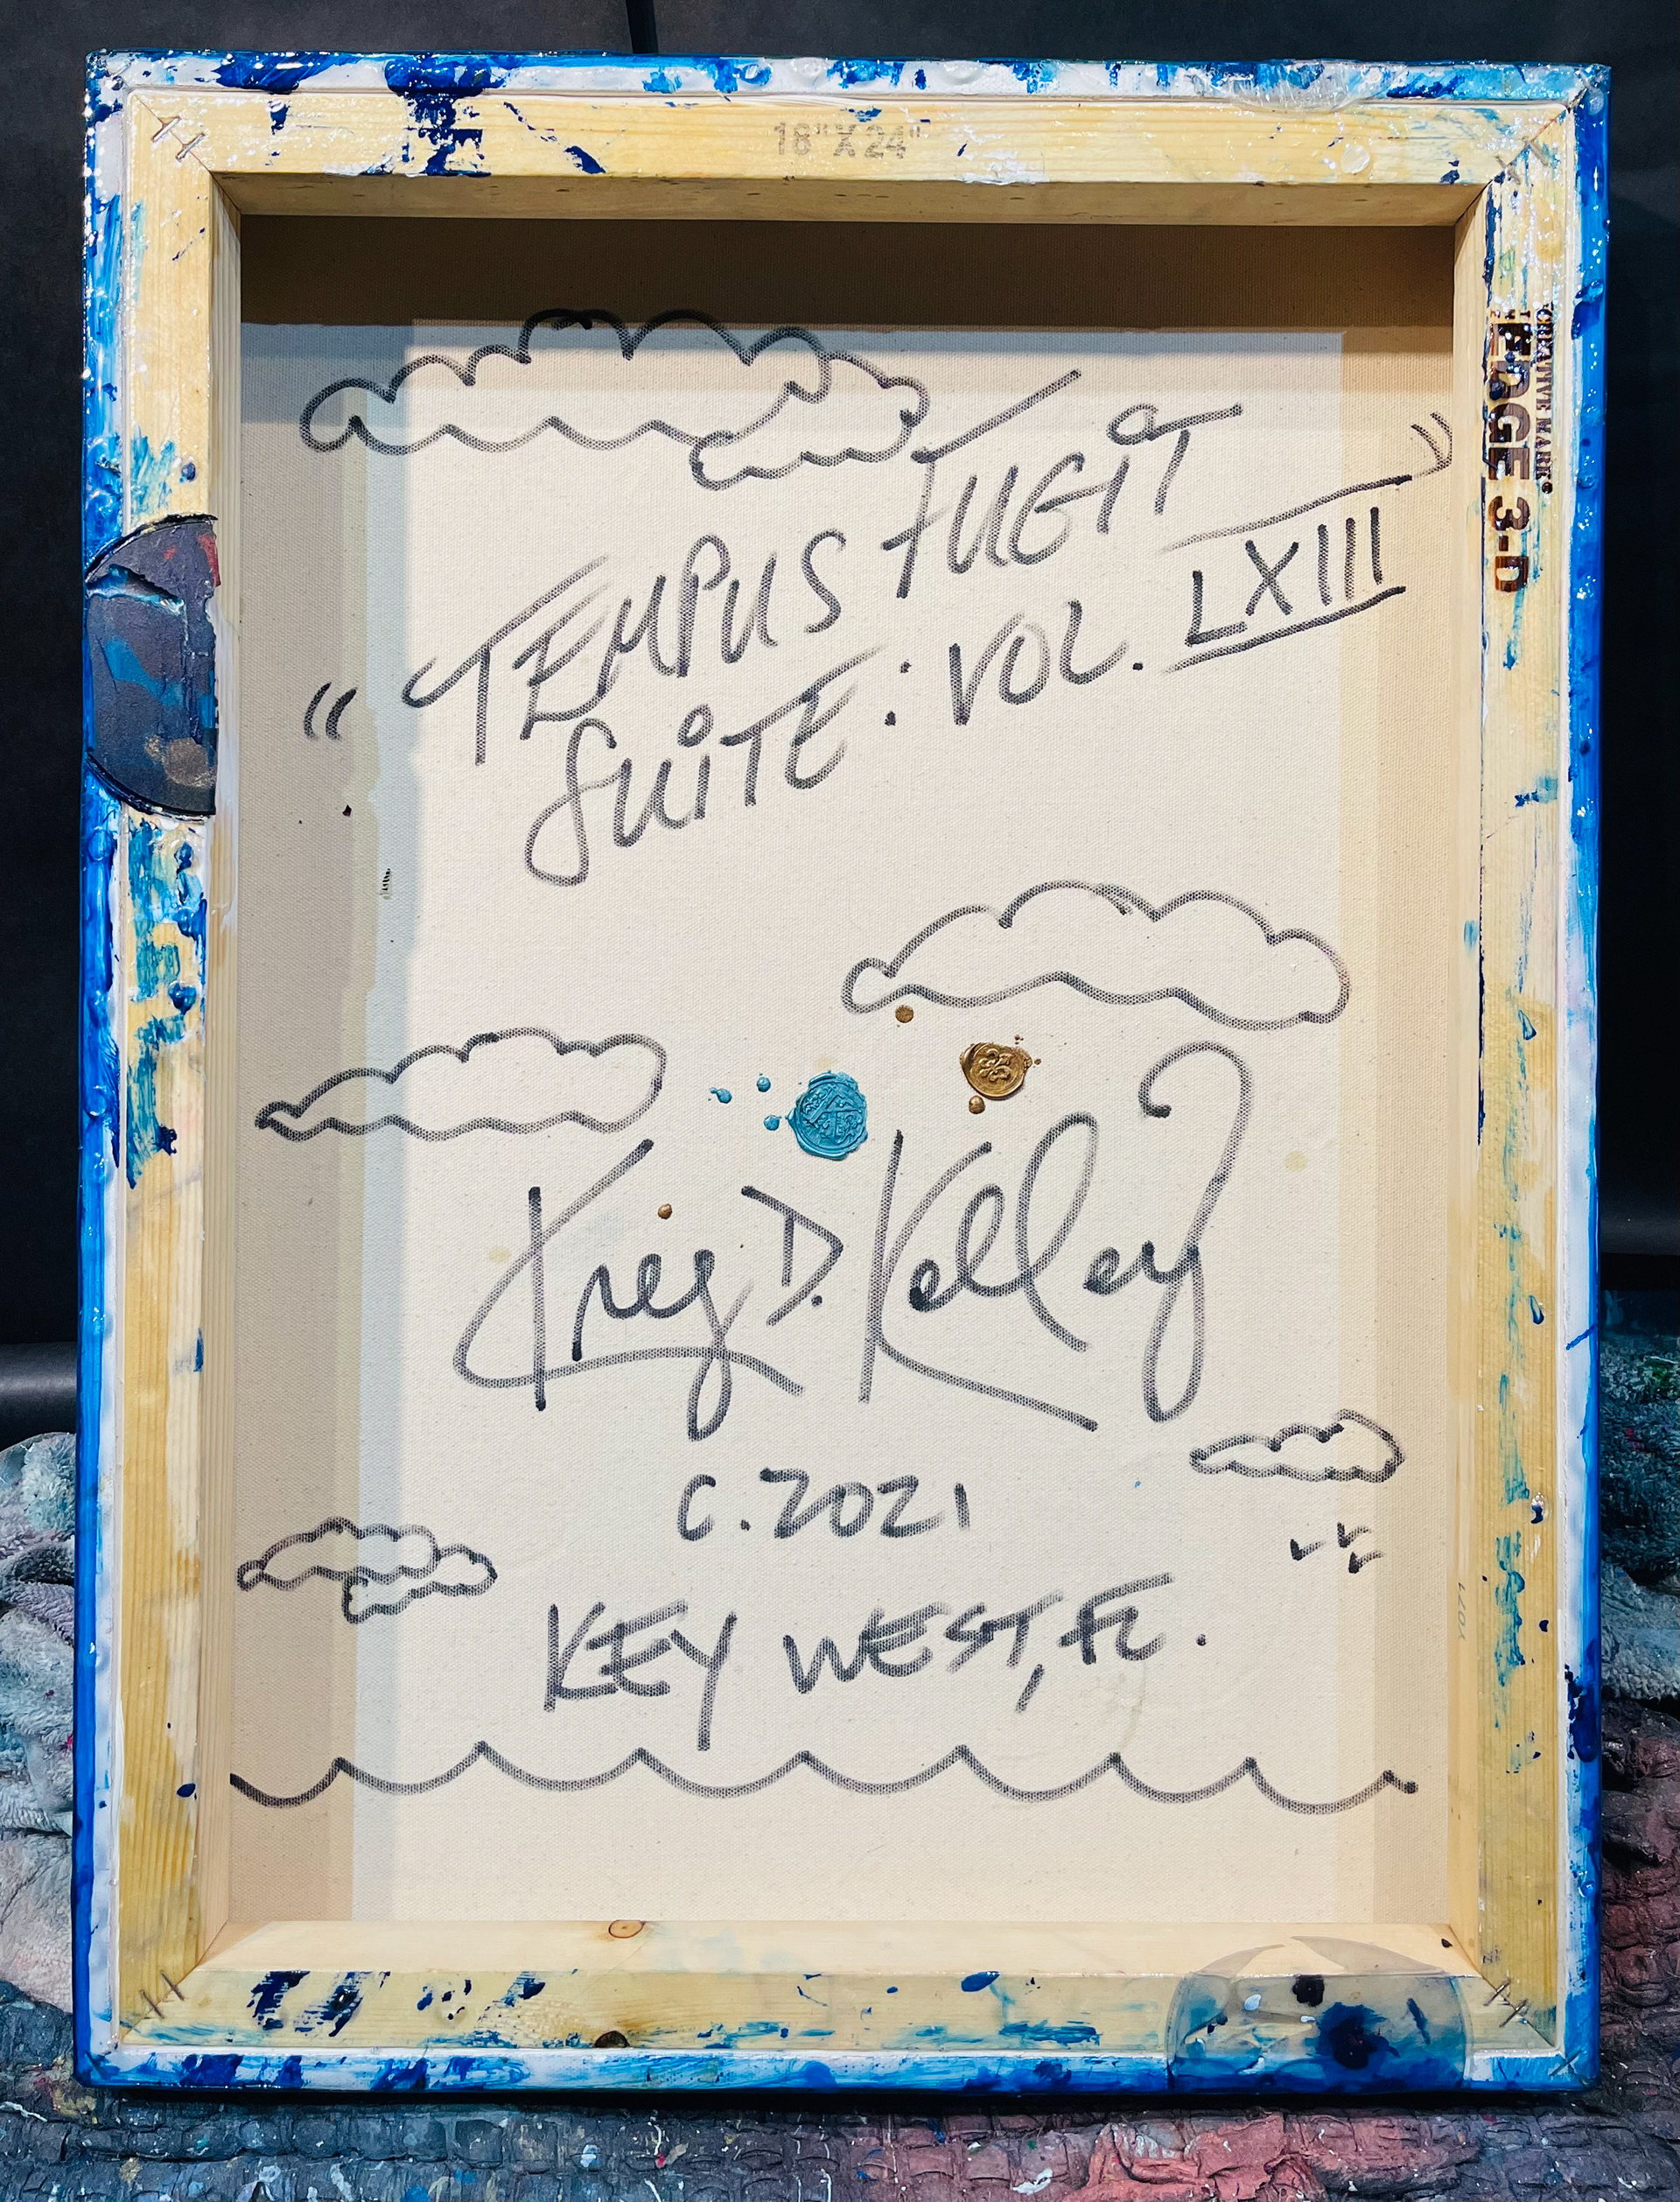 18" X 24"
CREATIVE MARK®
EDGE 3-D
"TEMPUS FUGIT
SUITE: VOL. LXIII"
Kreg D. Kelley
C. 2021
KEY WEST, FL.